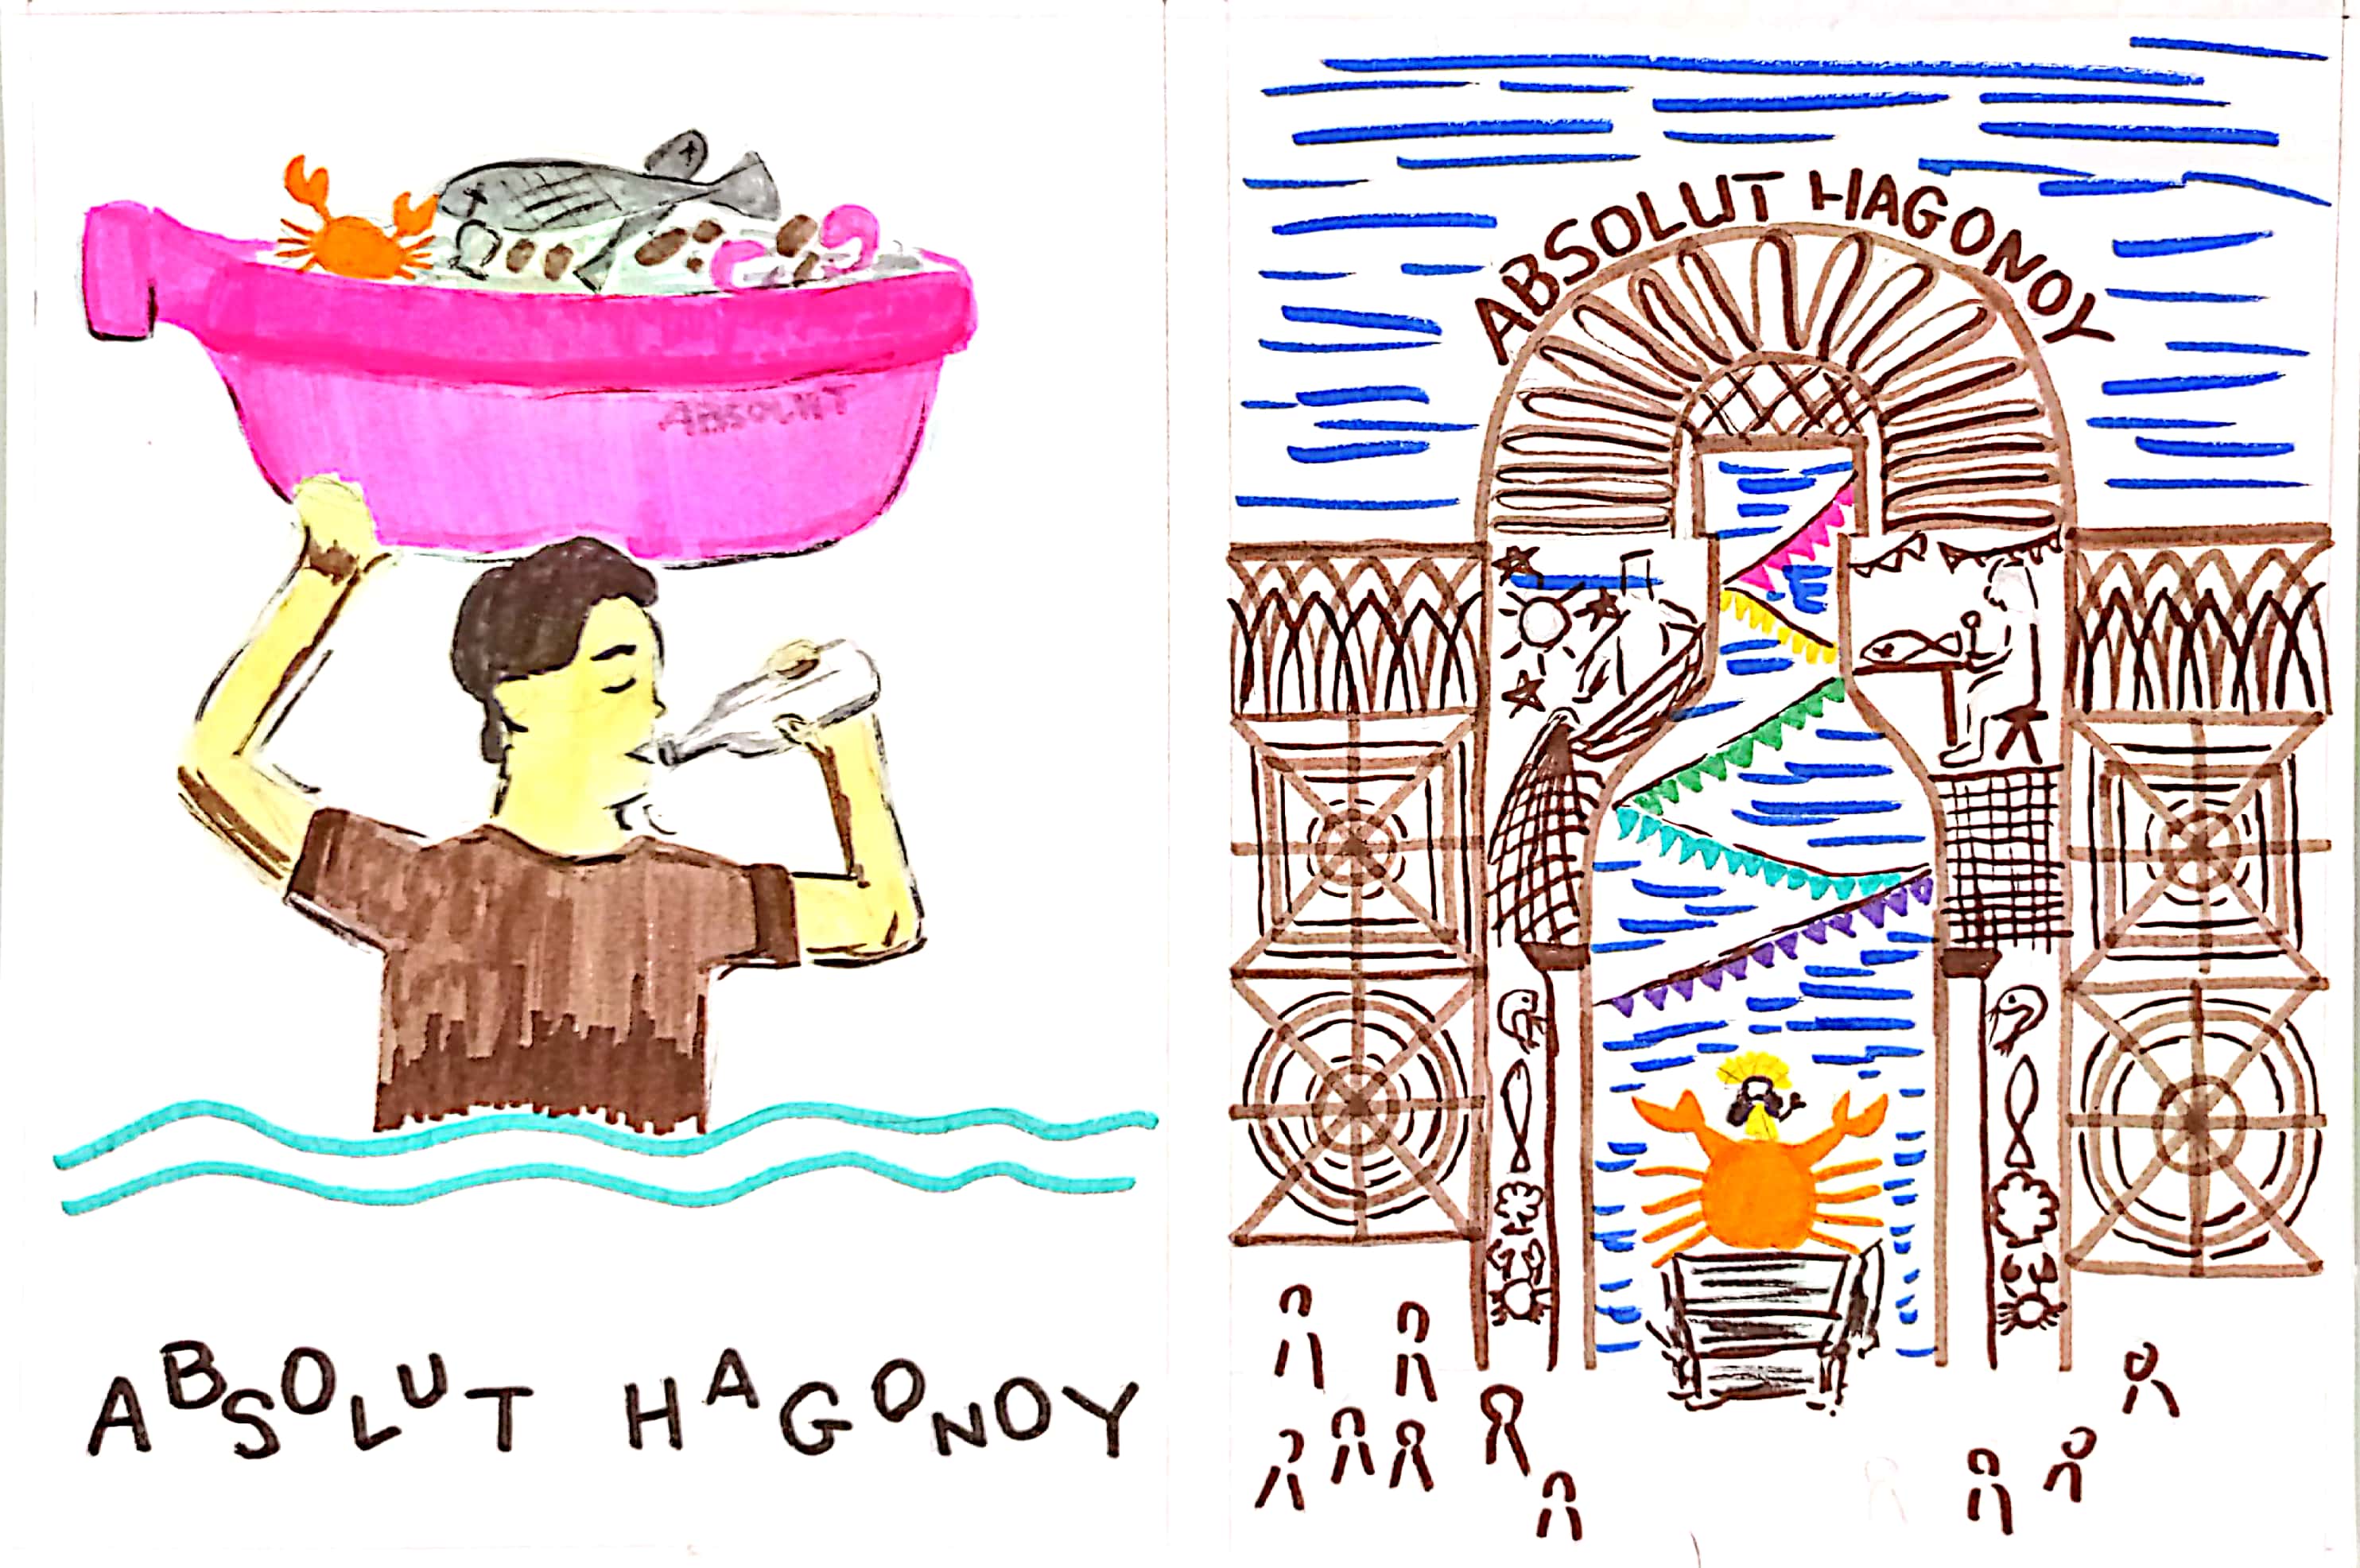 ABSOLUT
ABSOLUT HAGONOY
ABSOLUT HAGONOY